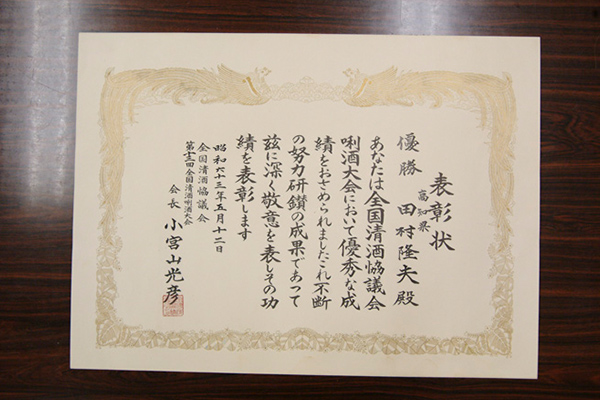 表彰状
高知県
田村隆夫殿
優勝
あなたは全国清酒協議会
唎酒大会において優秀な成
績をおさめられましたこれ不断
の努力研鑽の成果であって
茲に深く敬意を表しその功
績を表彰します
昭和六十三年五月十二日
全国清酒協議会
第十三回全国清酒唎酒大会
会長 小宮山光彦